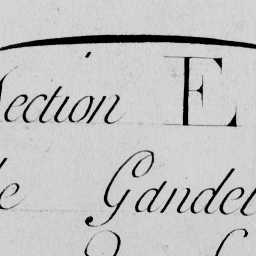 Section E
de Gandel